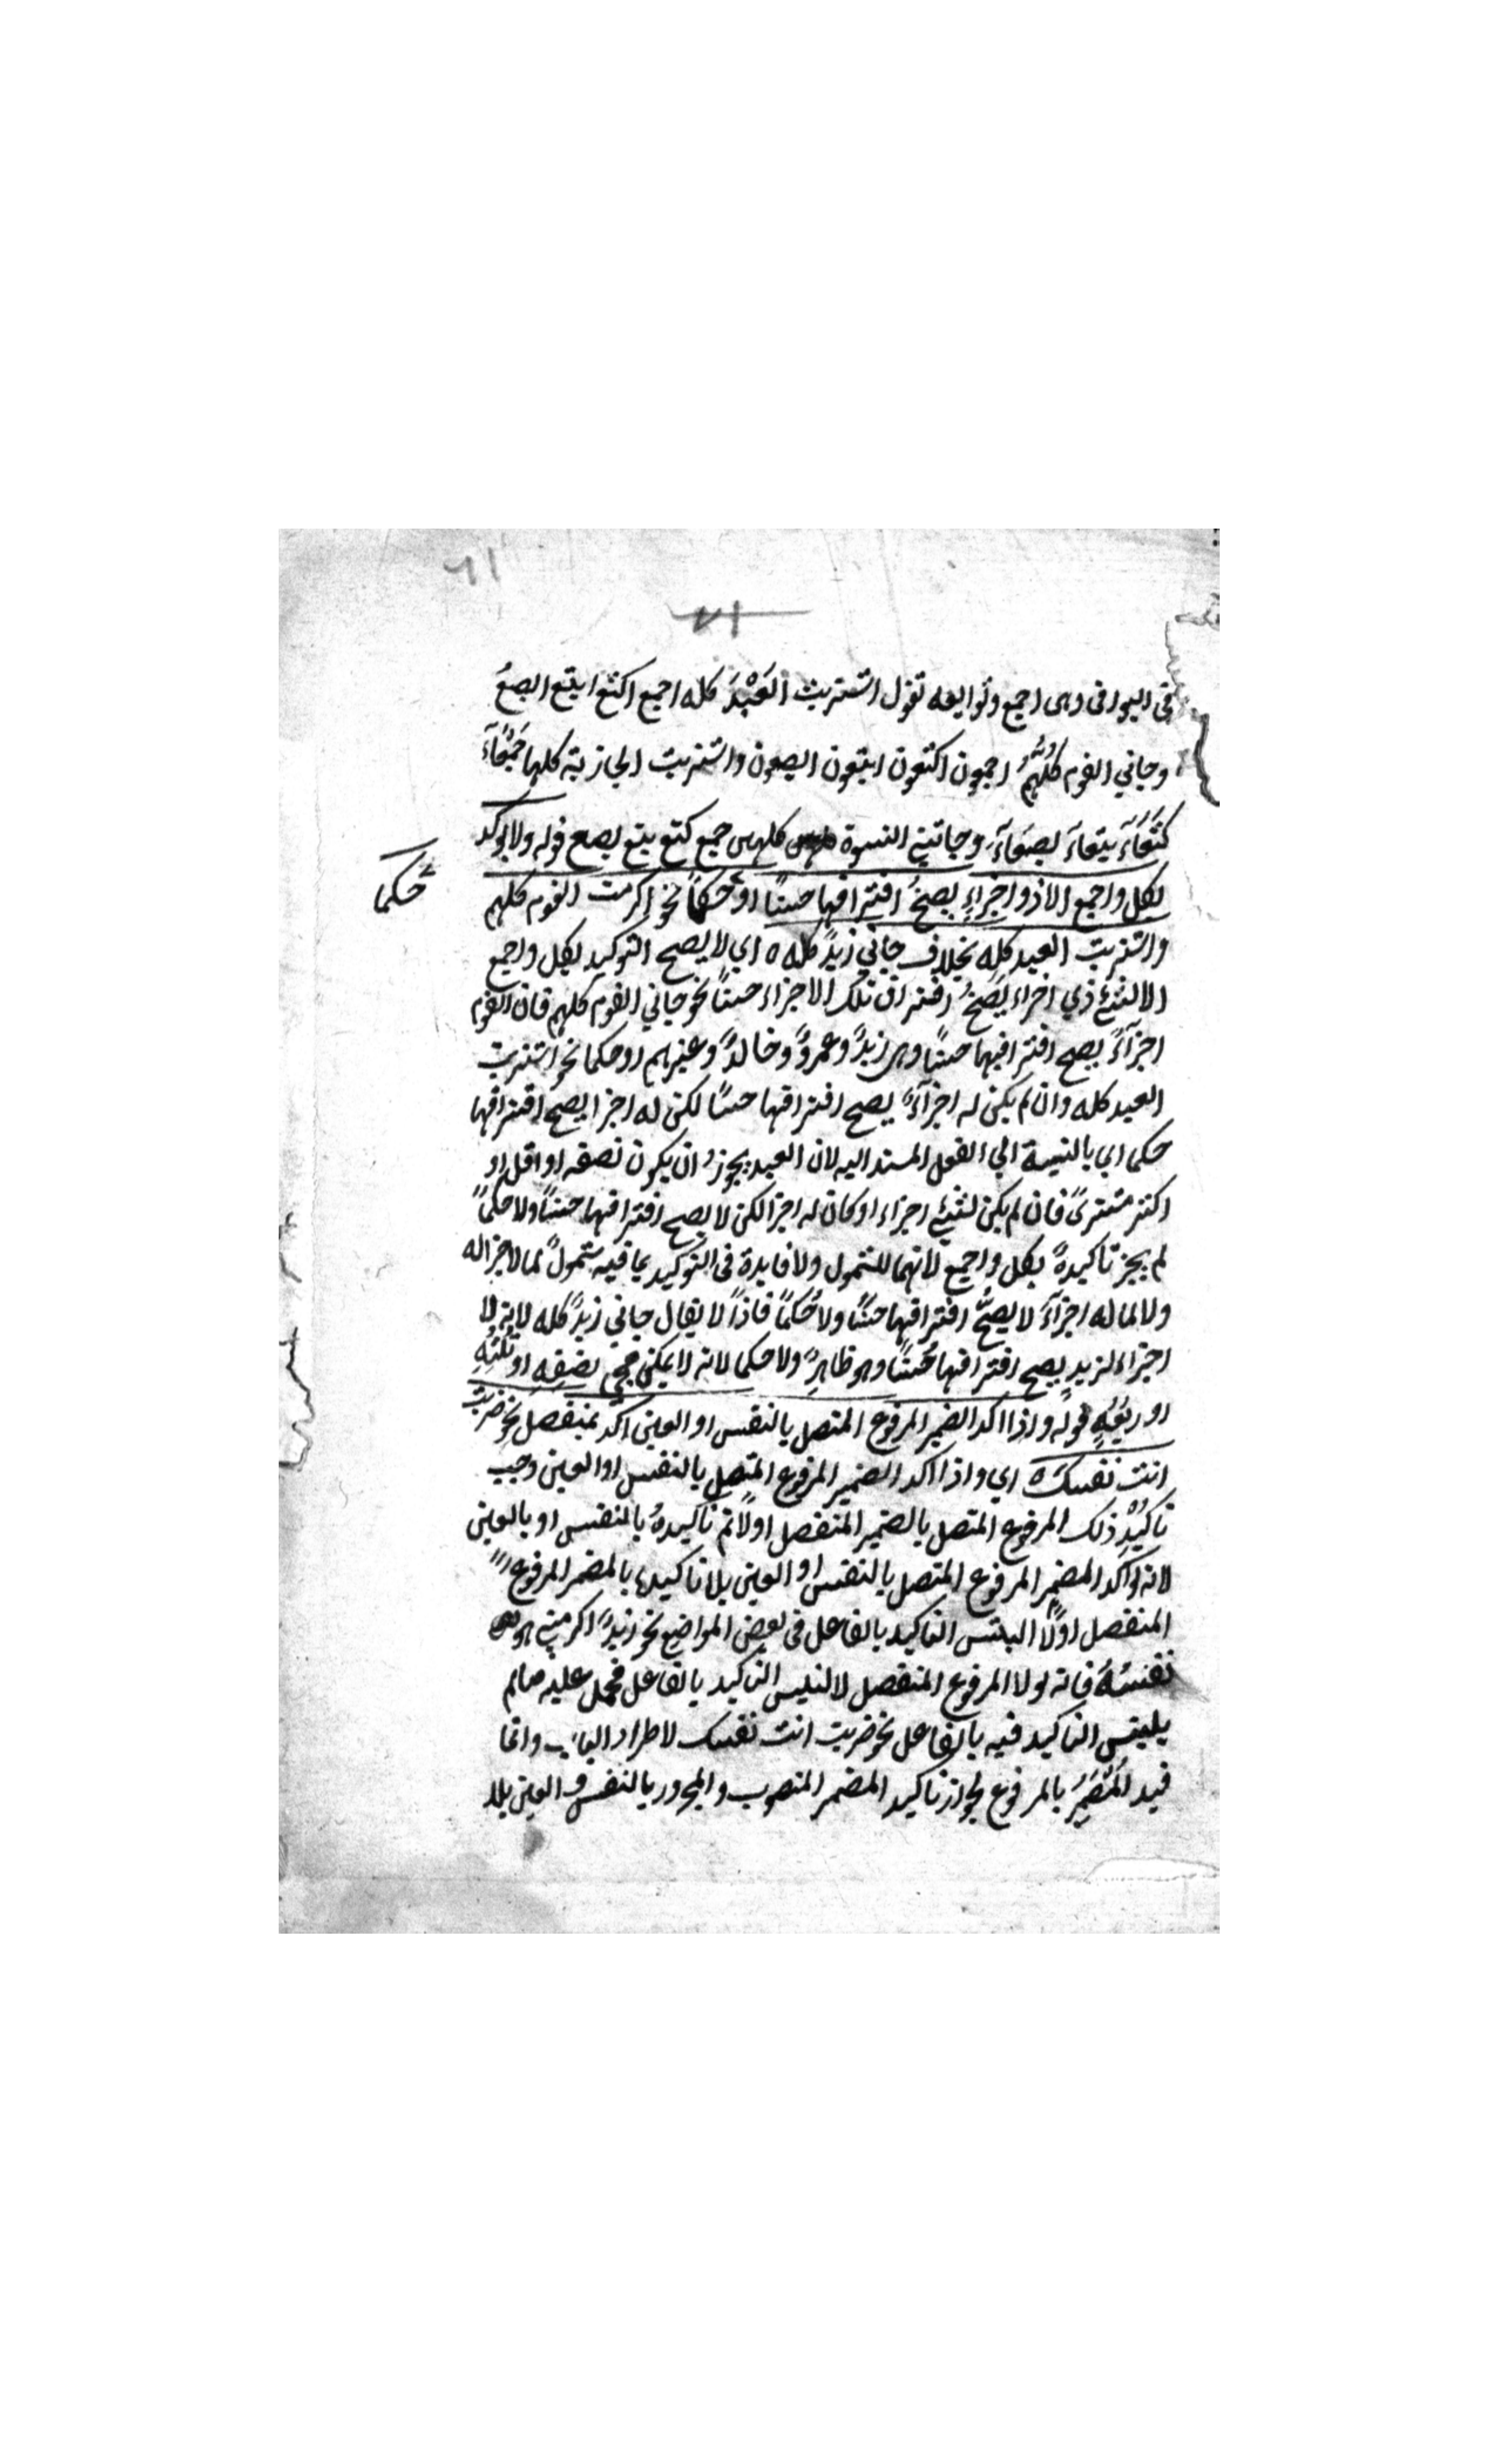 ٦١
٧١
في البواقى وهى اجمع وتوابعه تقول اشتريت العَبْدَ كله اجمع اكتع ابتع ابصعُ
وجاني القوم كلُّهمُ اجمعون اكتعون ابتعون ابصعون واشتريت الجارية كلها جَمْعَآءَ
كَتْعَآءَ بتعآءَ بصعَآءَ وجاتني النسوة كلهن جمع كتع بتع بصع قوله ولا يوكد
بكل واجمع الا ذو اجزاءٍ يصحُّ افتراقها حسًّا او حكمًا نحو اكرمت القوم كلهم
حكما
واشتريت العبد كله بخلاف جاني زيدٌ كله ه اي لا يصح التوكيد بكل واجمع
الا لشئ ذي اجزاء يَصحُّ افتراق تلك الاجزاء حسًّا نحو جاني القوم كلهم فان القوم
اجزآءً يصح افتراقها حسًّا وهى زيدٌ وعمروٌ وخالدٌ وغيرهم او حكما نحو اشتريت
العبد كله وان لم يكن له اجزآءٌ يصح افتراقها حسًّا لكن له اجزا يصح افتراقها
حكما اي بالنسبة الي الفعل المسند اليه لان العبد يجوزُ ان يكون نصفه او اقل او
اكثر مشترىً فان لم يكن لشئٍ اجزاء او كان له اجزا لكن لا يصح افتراقها حسًّا ولا حكمًا
لم يجز تاكيدهُ بكل واجمع لانهما للشمول ولا فايدة فى التوكيد بما فيه شمولٌ لما لا جزا له
ولا لما له اجزآءٌ لا يصحُّ افتراقها حسًّا ولا حُكمًا فاذاً لا يقال جاني زيدٌ كله لانه لا
اجزاء لزيدٍ يصح افتراقها حُسًّا وهو ظاهرٌ ولا حكما لانه لا يمكن مجئ نصفِهِ او ثلثِهِ
او ربعِهِ قوله واذا اكد الضمير المرفوع المتصل بالنفس او العين اكد بمنفصل نحو ضربت
انت نفسك ه اي واذا اكد الضمير المرفوع المتصل بالنفس او العين وجب
تاكيدُ ذلك المرفوع المتصل بالضمير المنفصل اولًا ثم تاكيدهُ بالنفس او بالعين
لانه لو اكد المضمر المرفوع المتصل بالنفس او العين بلا تاكيده بالمضمر المرفوع
المنفصل اولًا التبس التاكيد بالفاعل فى بعض المواضع نحو زيدٌ اكرمني هو
نفسُهُ فانه لولا المرفوع المنفصل لالتبس التاكيد بالفاعل فحمل عليه ما لم
يلتبس التاكيد فيه بالفاعل نحو ضربت انت نفسك لاطراد الباب وانما
قيد المُضمَرُ بالمرفوع لجواز تاكيد المضمر المنصوب والمجرور بالنفس والعين بلا